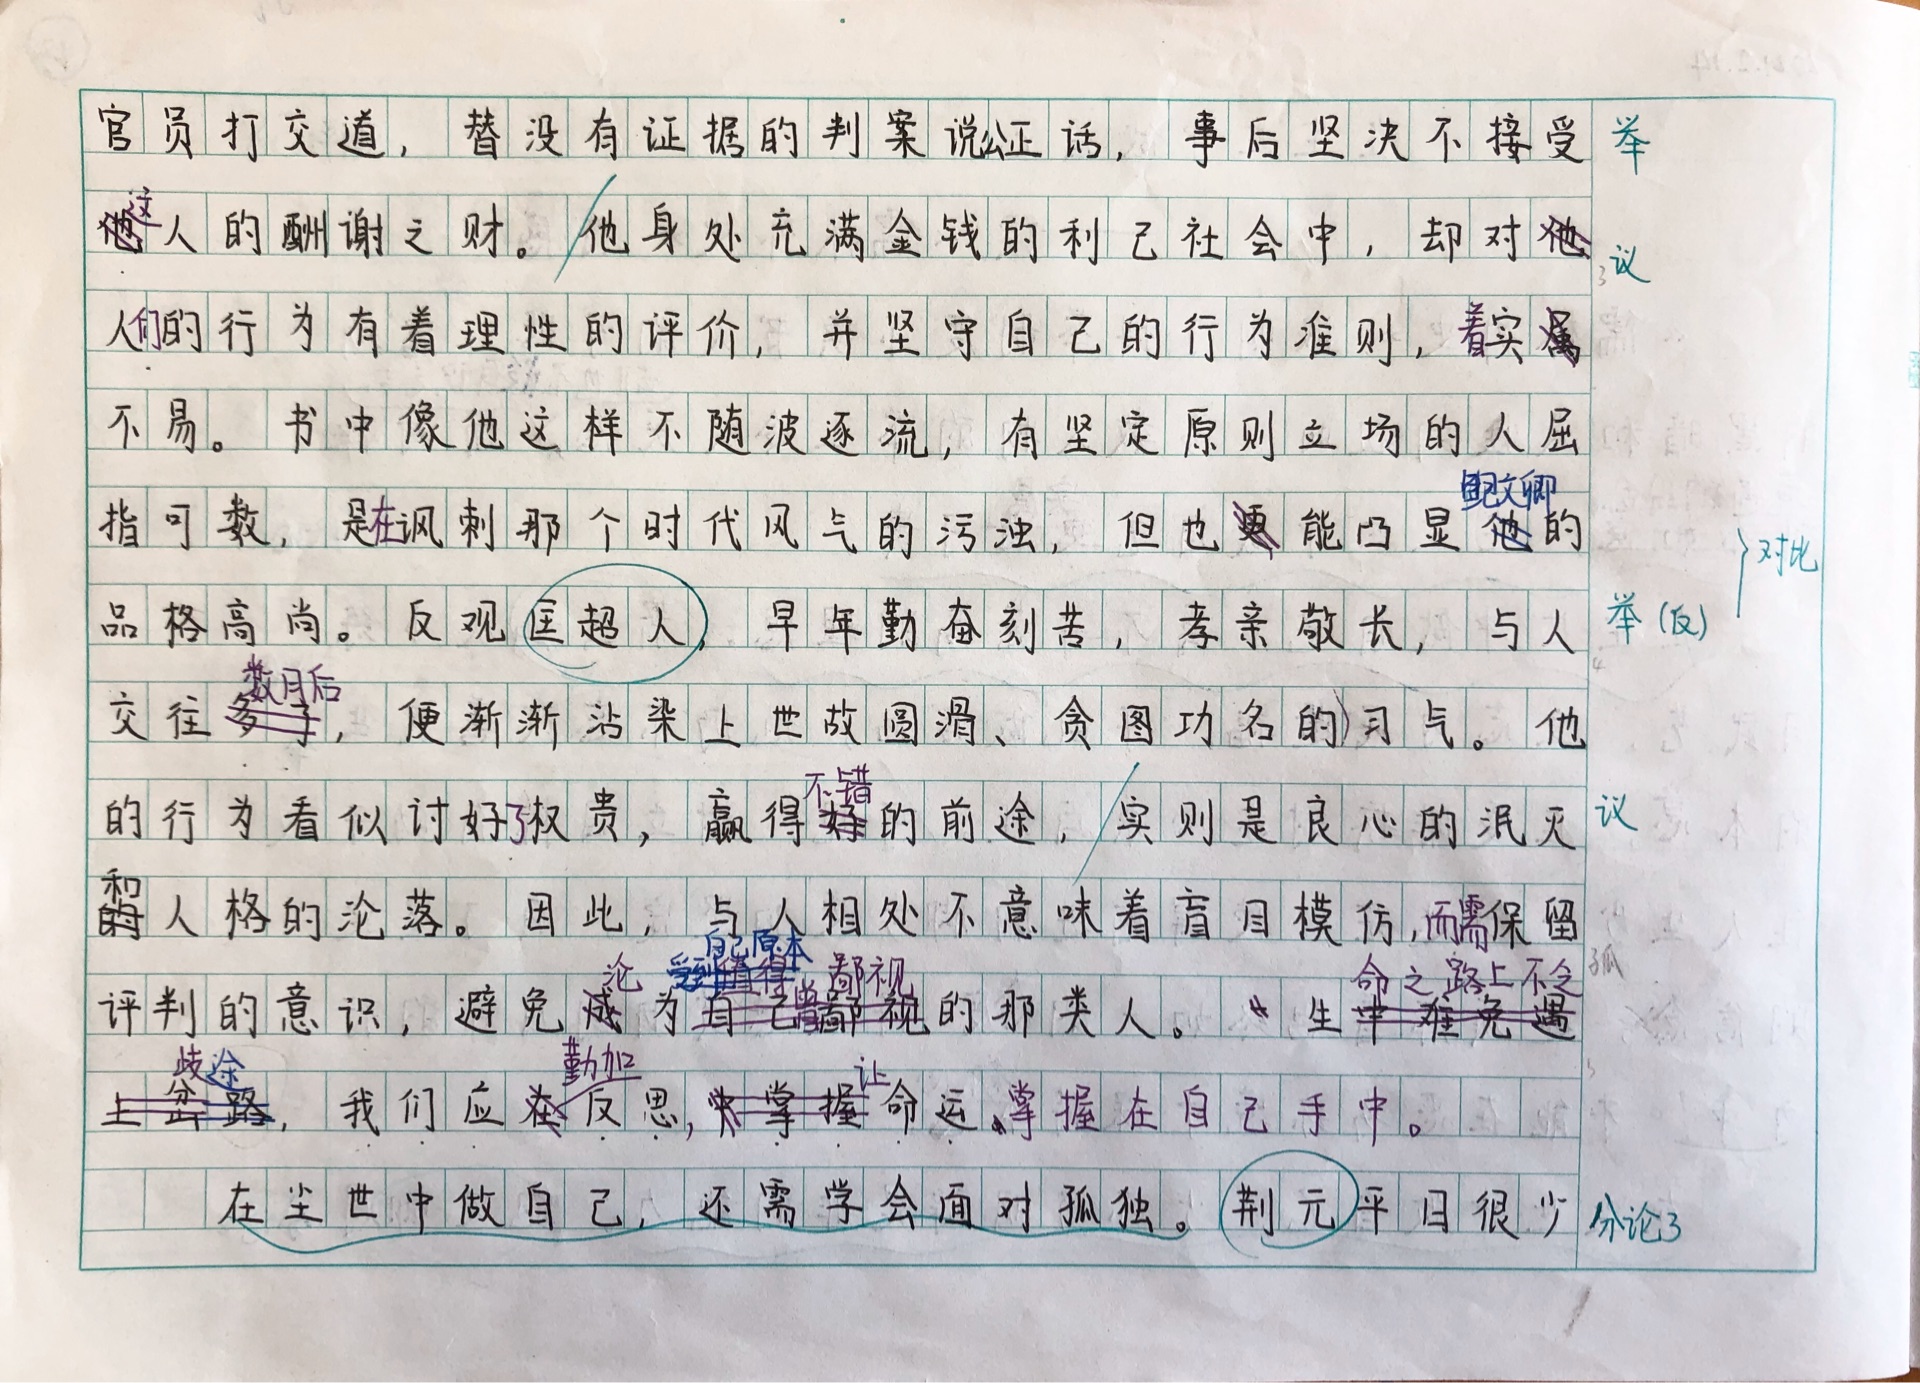 官员打交道，替没有证据的判案说公正话，事后坚决不接受 举
这人的酬谢之财。他身处充满金钱的利己社会中，却对 议
人们的行为有着理性的评价，并坚守自己的行为准则，着实
不易。书中像他这样不随波逐流，有坚定原则立场的人屈
指可数，是在讽刺那个时代风气的污浊，但也能凸显鲍文卿的
对比
品格高尚。反观匡超人，早年勤奋刻苦，孝亲敬长，与人 举(反)
交往数月后，便渐渐沾染上世故圆滑、贪图功名的习气。他
的行为看似讨好了权贵，赢得不错的前途，实则是良心的泯灭 议
和人格的沦落。因此，与人相处不意味着盲目模仿，而需保留
评判的意识，避免沦为自己原本鄙视的那类人。生命之路上不乏
歧途，我们应勤加反思，让命运掌握在自己手中。
在尘世中做自己，还需学会面对孤独。荆元平日很少 分论3